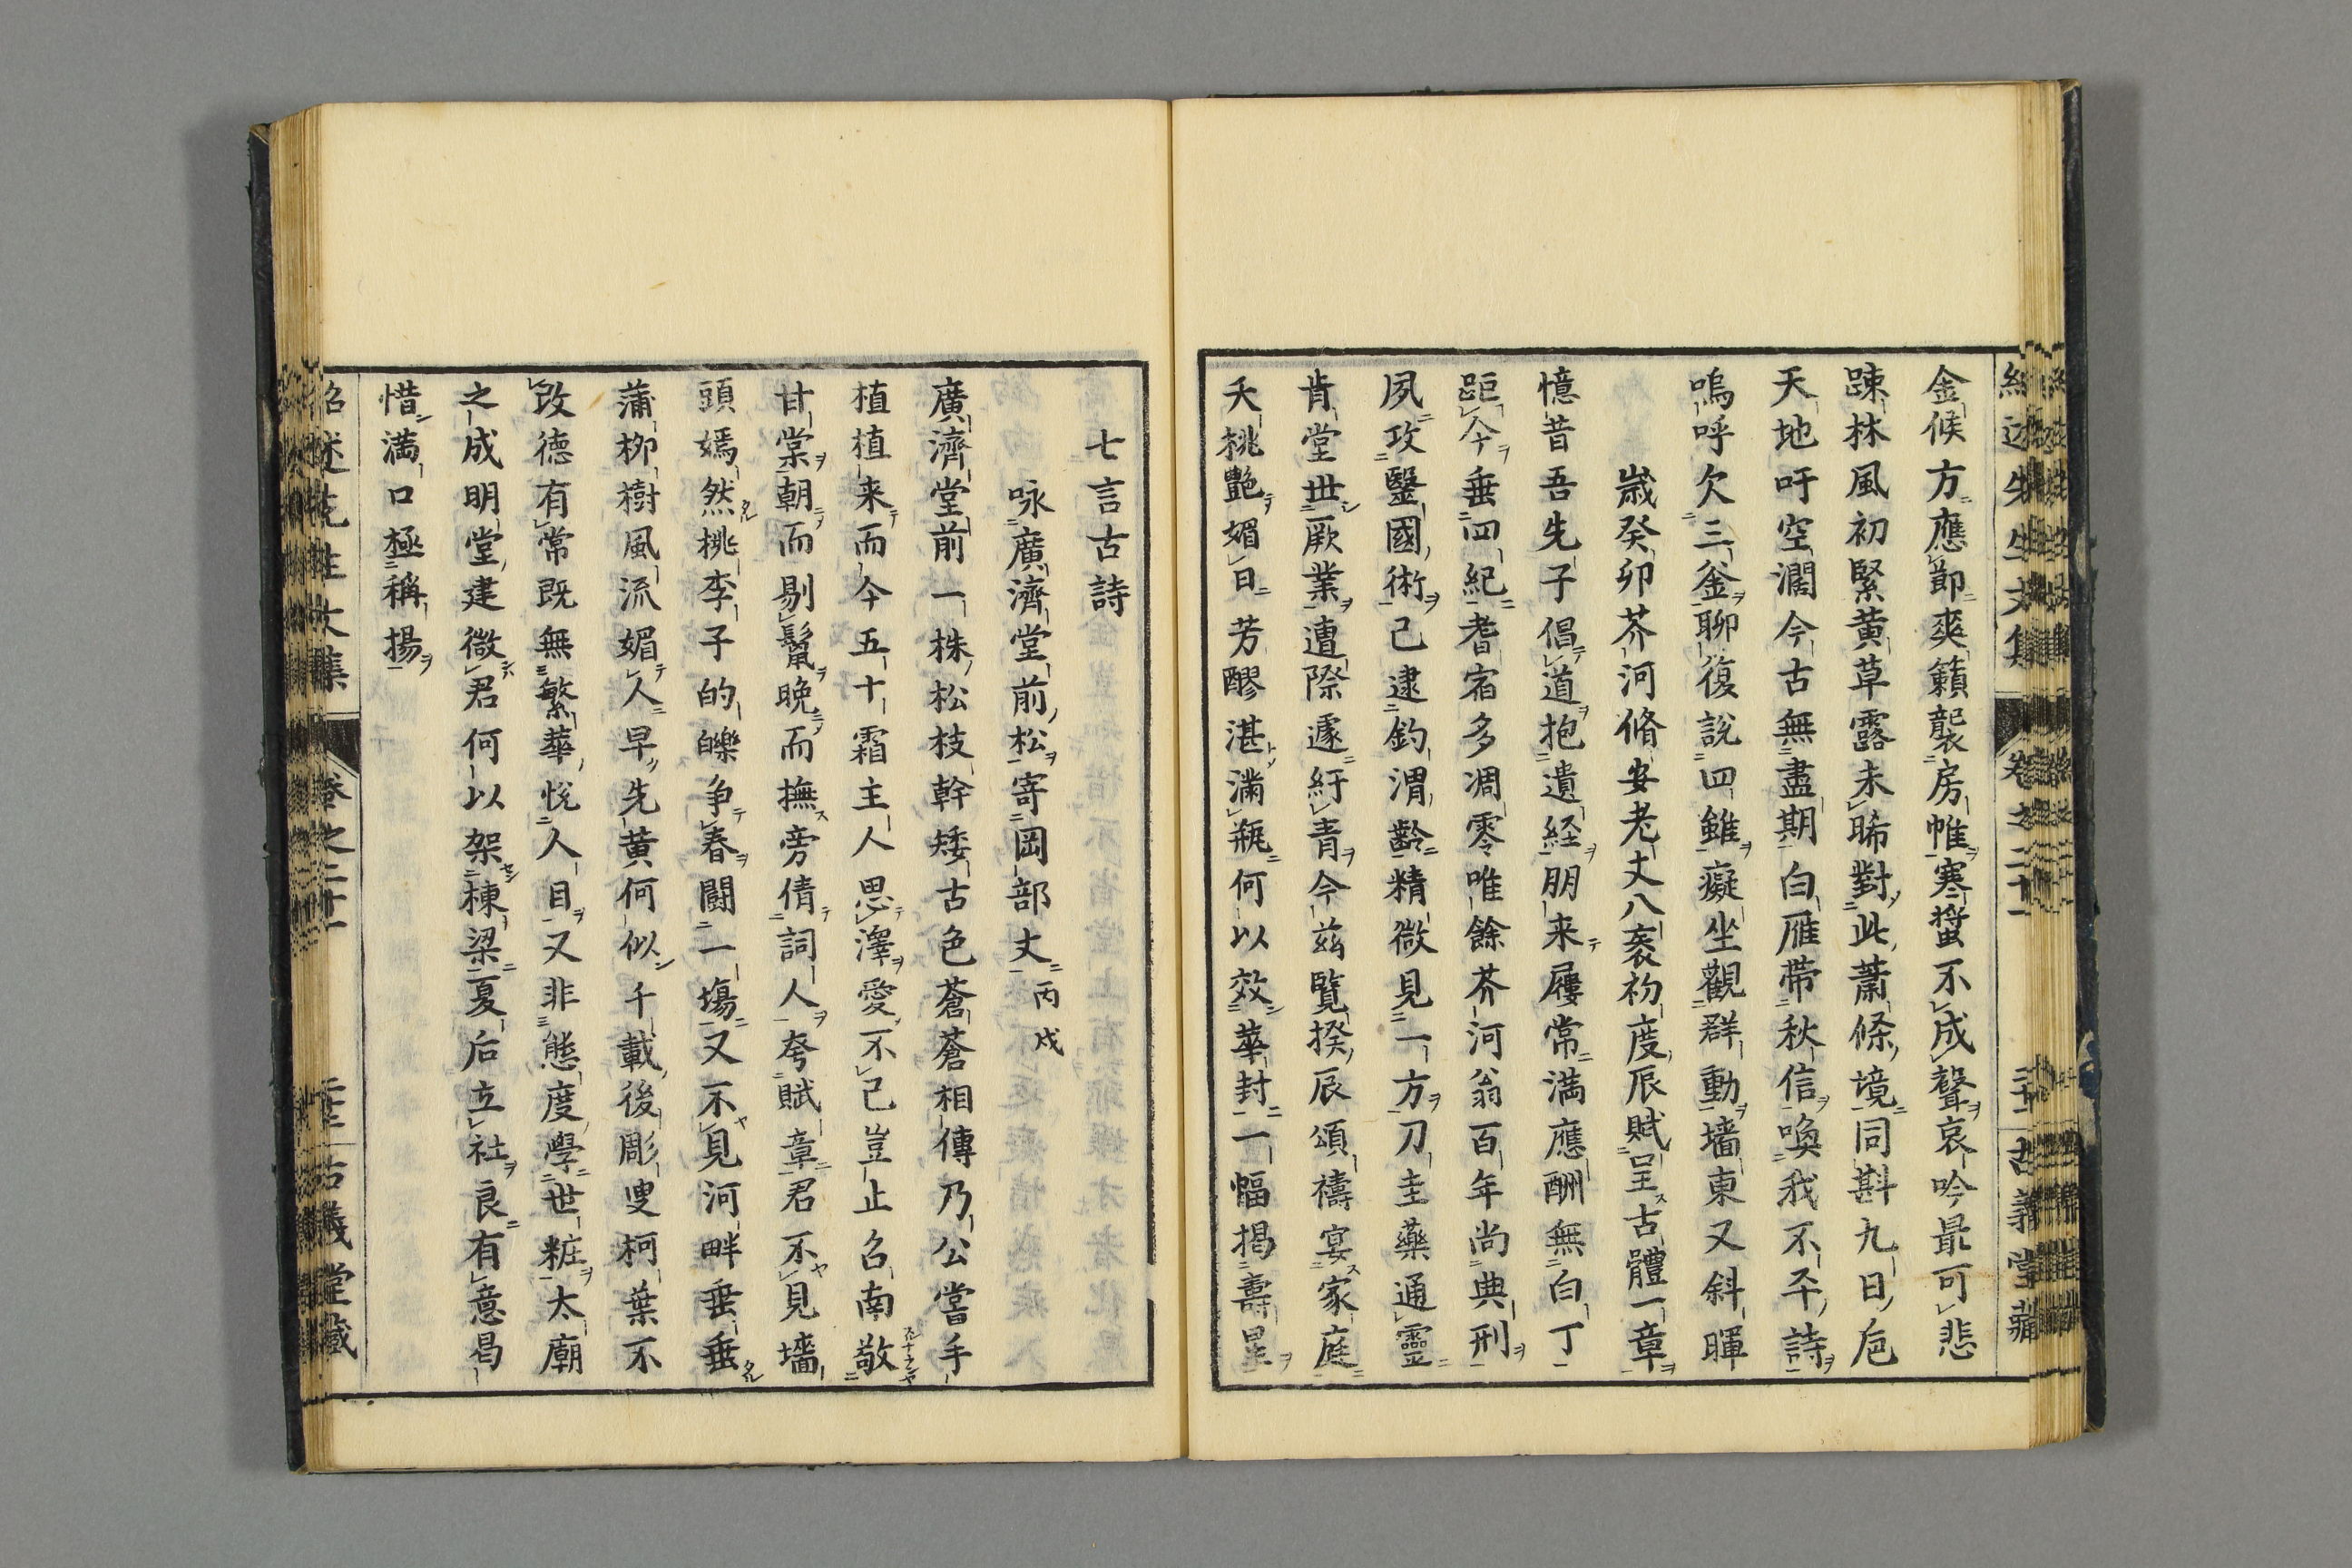 金候方應節爽籟襲房帷寒螀不成聲哀吟最可悲
踈林風初緊黄草露未晞對此蕭條境同斟九日巵
天地吁空濶今古無盡期白雁帶秋信喚我不平詩
嗚呼欠三釜聊復說四雖癡坐觀群動墻東又斜暉
歳癸卯芥河脩安老丈八袠初度辰賦呈古體一章
憶昔吾先子倡道抱遺経朋来屨常満應酬無白丁
距今垂四紀耆宿多凋零唯餘芥河翁百年尚典刑
夙攻醫國術已逮釣渭齡精微見一方刀圭藥通靈
肯堂世厥業遭際遽紆青今茲覽揆辰頌禱宴家庭
夭桃艷媚日芳醪湛滿瓶何以效華封一幅掲壽星
七言古詩
咏廣濟堂前松寄岡部丈 丙戌
廣濟堂前一株松枝幹矮古色蒼蒼相傳乃公當手
植植来而今五十霜主人思澤愛不已豈止召南敬
甘棠朝而剔鬟晩而撫旁倩詞人夸賦章君不見墻
頭嫣然桃李子的皪争春鬪一塲又不見河畔垂垂
蒲柳樹風流媚人早先黄何似千載後彫叟柯葉不
改德有常既無繁華悦人目又非態度學世粧太廟
之成明堂建微君何以架棟梁夏后立社良有意曷
惜満口極稱揚
紹述先生文集 卷之二十一 古義堂藏